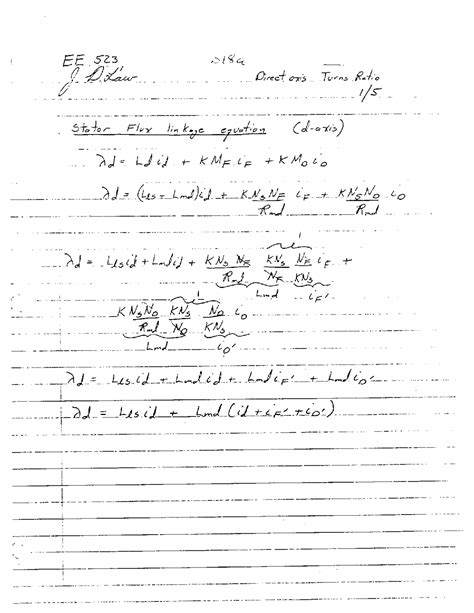 EE 523 218a
J. D. Law Direct axis Turns Ratio
1/5
Stator Flux linkage equation (d-axis)
λd = Ld id + K MF iF + K MD iD
λd = (Lls + Lmd)id + KNsNF/Rmd iF + KNsND/Rmd iD
1
λd = Lls id + Lmd id + KNs NF/Rmd KNs/NF NF/KNs iF +
Lmd iF'
1
KNsND/Rmd KNs/ND ND/KNs iD
Lmd iD'
λd = Lls id + Lmd id + Lmd iF' + Lmd iD'
λd = Lls id + Lmd (id + iF' + iD')